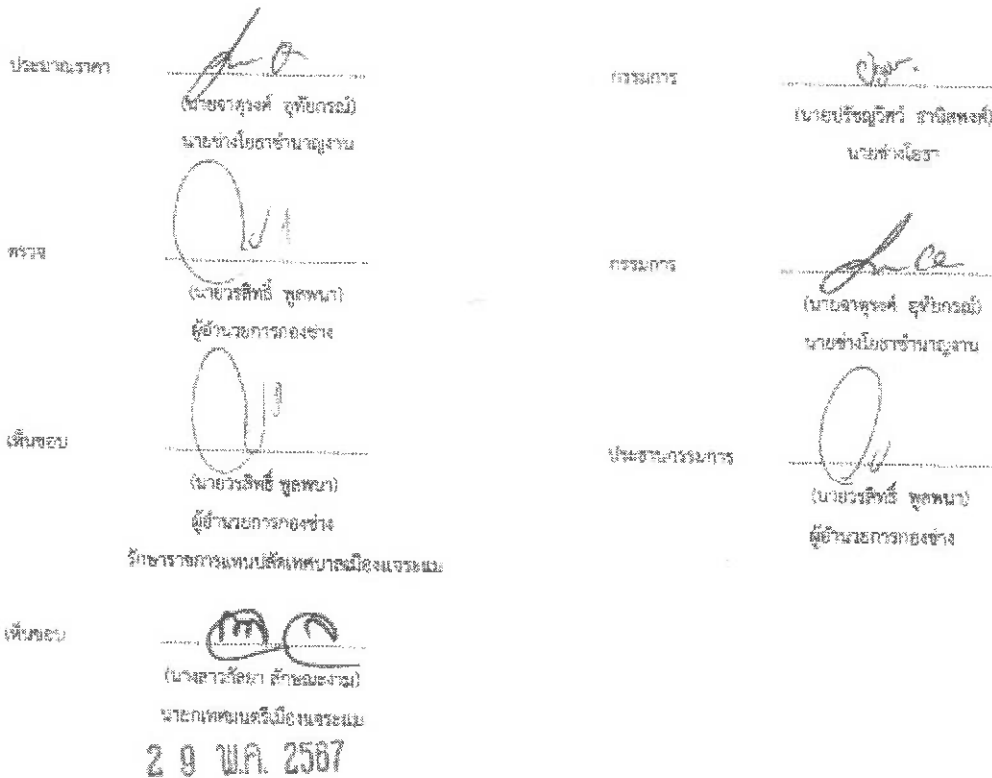 ประมาณราคา
(นายจาตุรงค์ อุทัยกรณ์)
นายช่างโยธาชำนาญงาน
ตรวจ
(นายวรสิทธิ์ พูลพนา)
ผู้อำนวยการกองช่าง
เห็นชอบ
(นายวรสิทธิ์ พูลพนา)
ผู้อำนวยการกองช่าง
รักษาราชการแทนปลัดเทศบาลเมืองแจระแม
เห็นชอบ
(นางสาวกัลยา ลักษณะงาม)
นายกเทศมนตรีเมืองแจระแม
2 9 พ.ค. 2567
กรรมการ
(นายปรัชญวิศว์ ธานิสพงศ์)
นายช่างโยธา
กรรมการ
(นายจาตุรงค์ อุทัยกรณ์)
นายช่างโยธาชำนาญงาน
ประธานกรรมการ
(นายวรสิทธิ์ พูลพนา)
ผู้อำนวยการกองช่าง